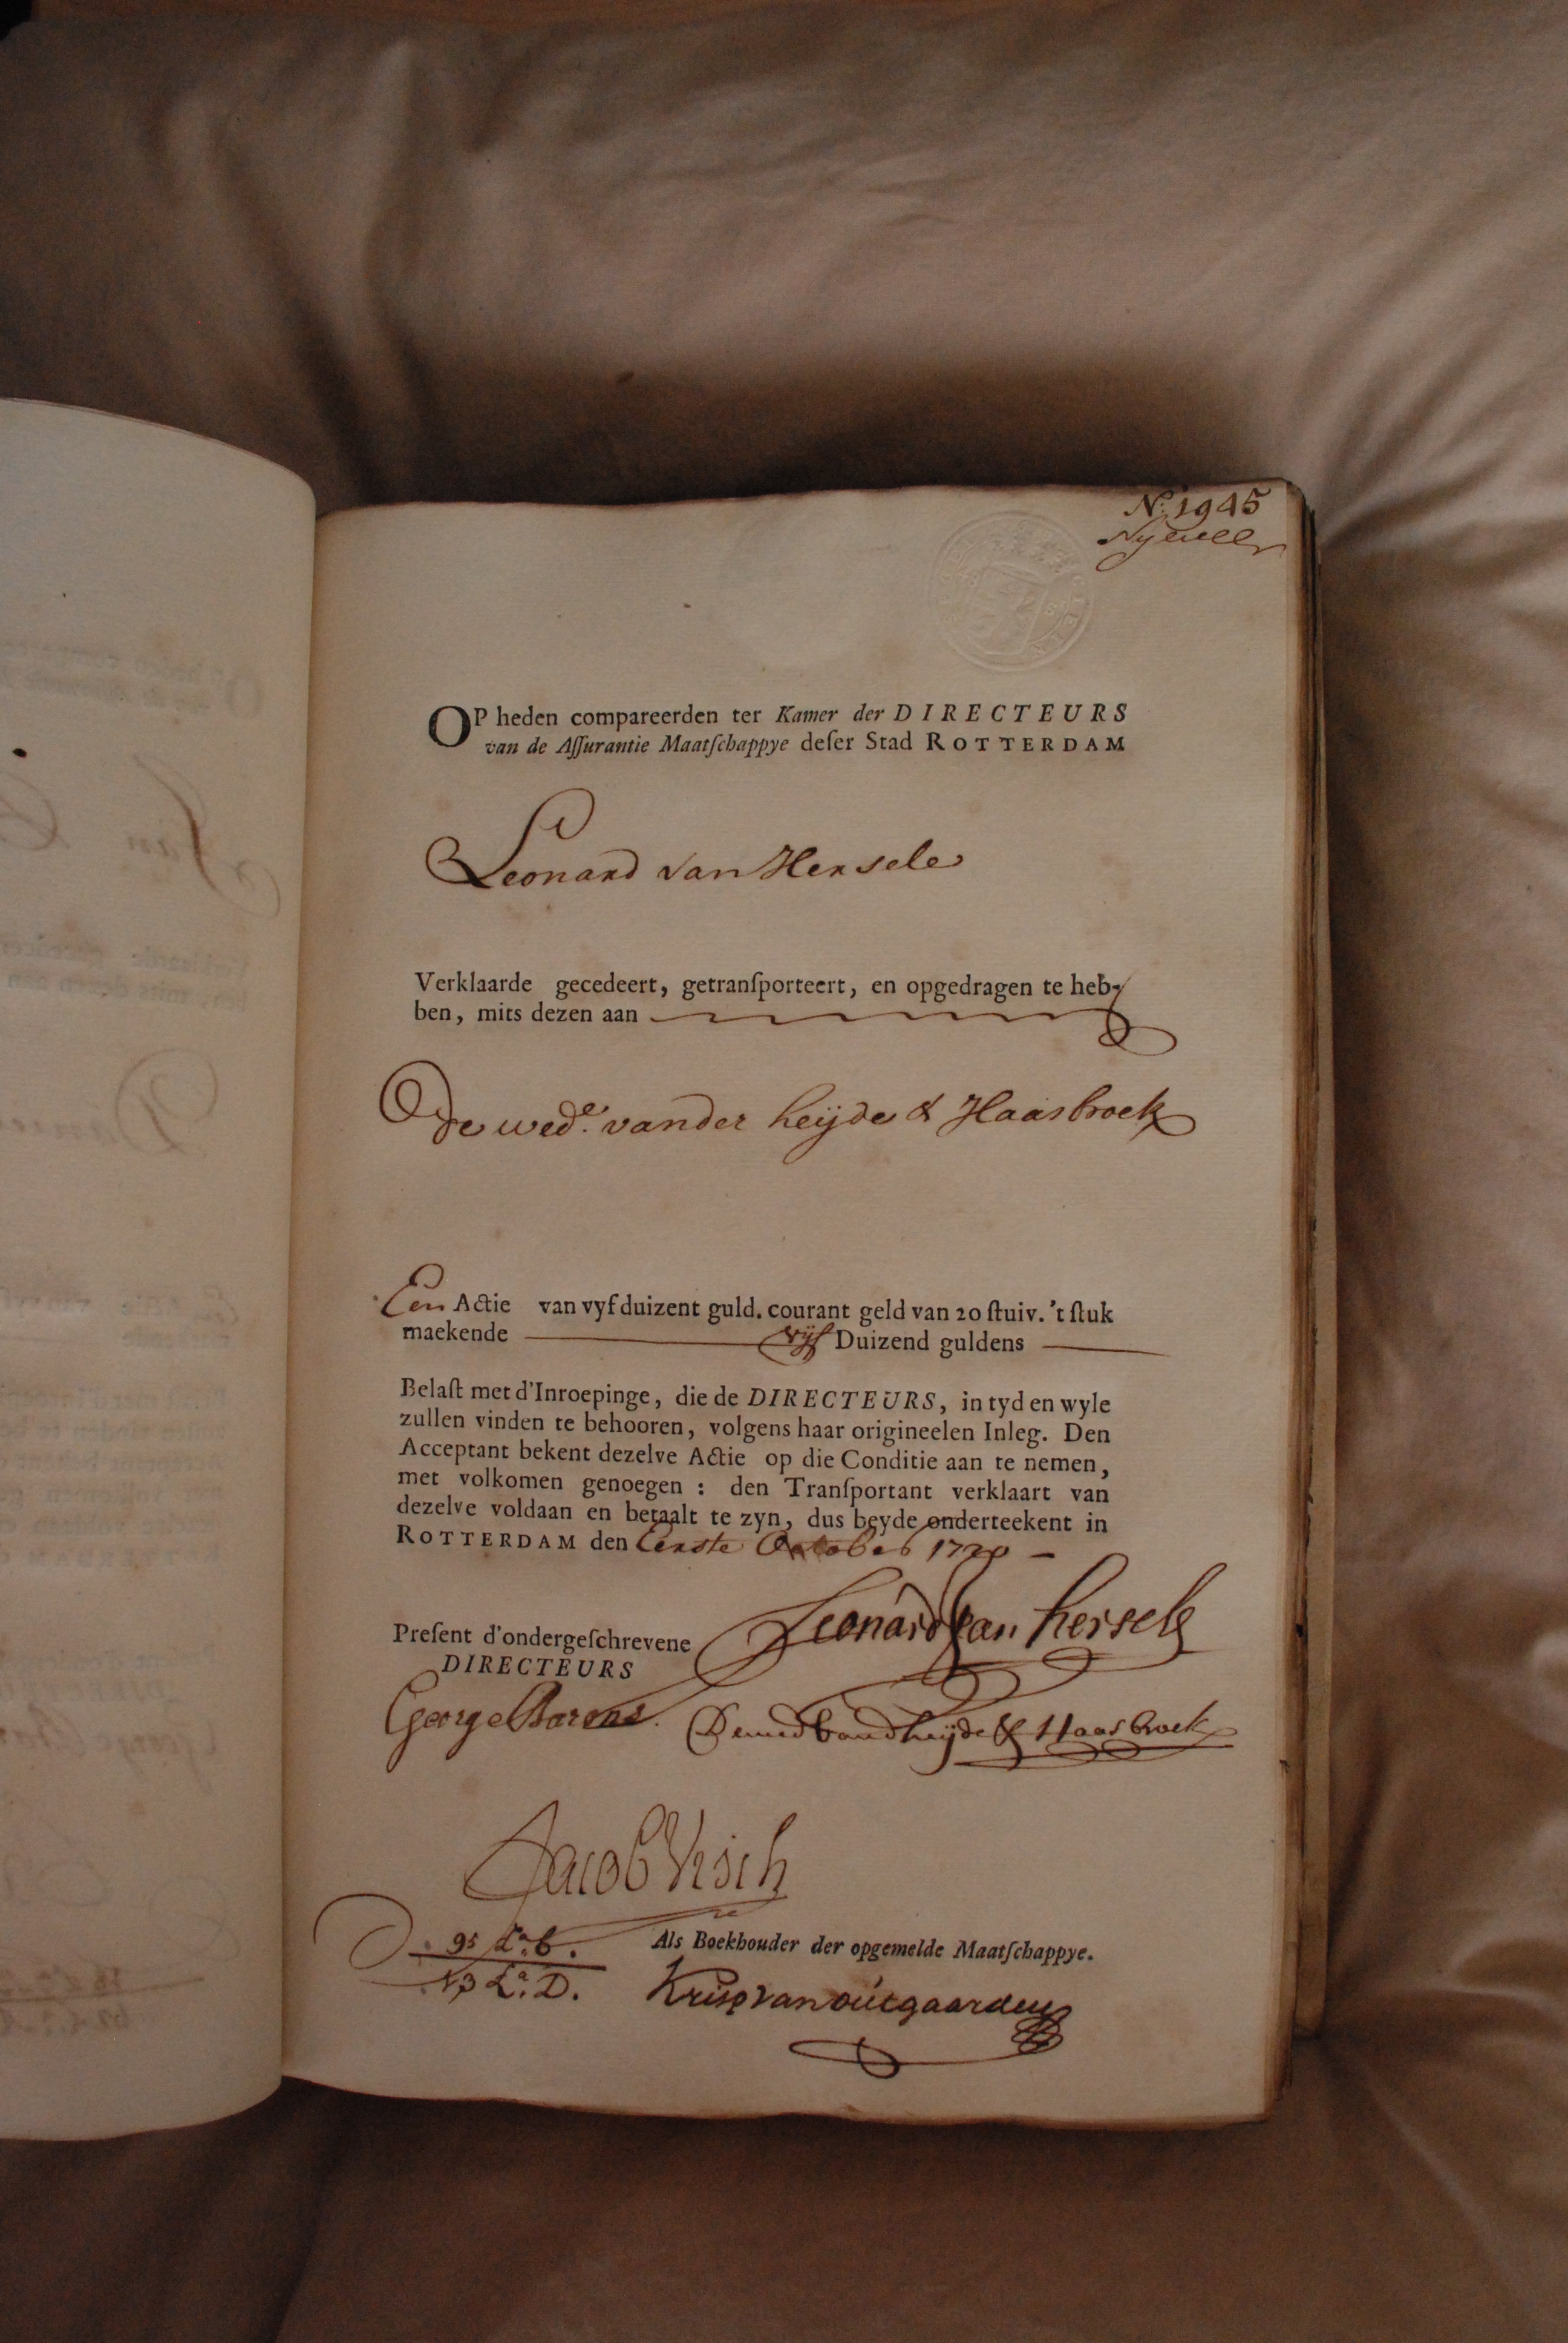 No. 1945
OP heden compareerden ter Kamer der DIRECTEURS
van de Aſſurantie Maatſchappye deſer Stad ROTTERDAM
Leonard van Hersele
Verklaarde gecedeert, getranſporteert, en opgedragen te heb-
ben, mits dezen aan
De wede. vander heijde & Haasbroek
Een Actie van vyf duizent guld. courant geld van 20 ſtuiv. 't ſtuk
maekende vijf Duizend guldens
Belaſt met d'Inroepinge, die de DIRECTEURS, in tyd en wyle
zullen vinden te behooren, volgens haar origineelen Inleg. Den
Acceptant bekent dezelve Actie op die Conditie aan te nemen,
met volkomen genoegen: den Tranſportant verklaart van
dezelve voldaan en betaalt te zyn, dus beyde onderteekent in
ROTTERDAM den Eerste October 1720
Preſent d'ondergeſchrevene
DIRECTEURS
Leonard van hersele
George Barons.
De wed vand heijde & Haasbroek
Jacob Visch
95 La. b.
Als Boekhouder der opgemelde Maatſchappye.
La. D.
Krisp van outgaarden